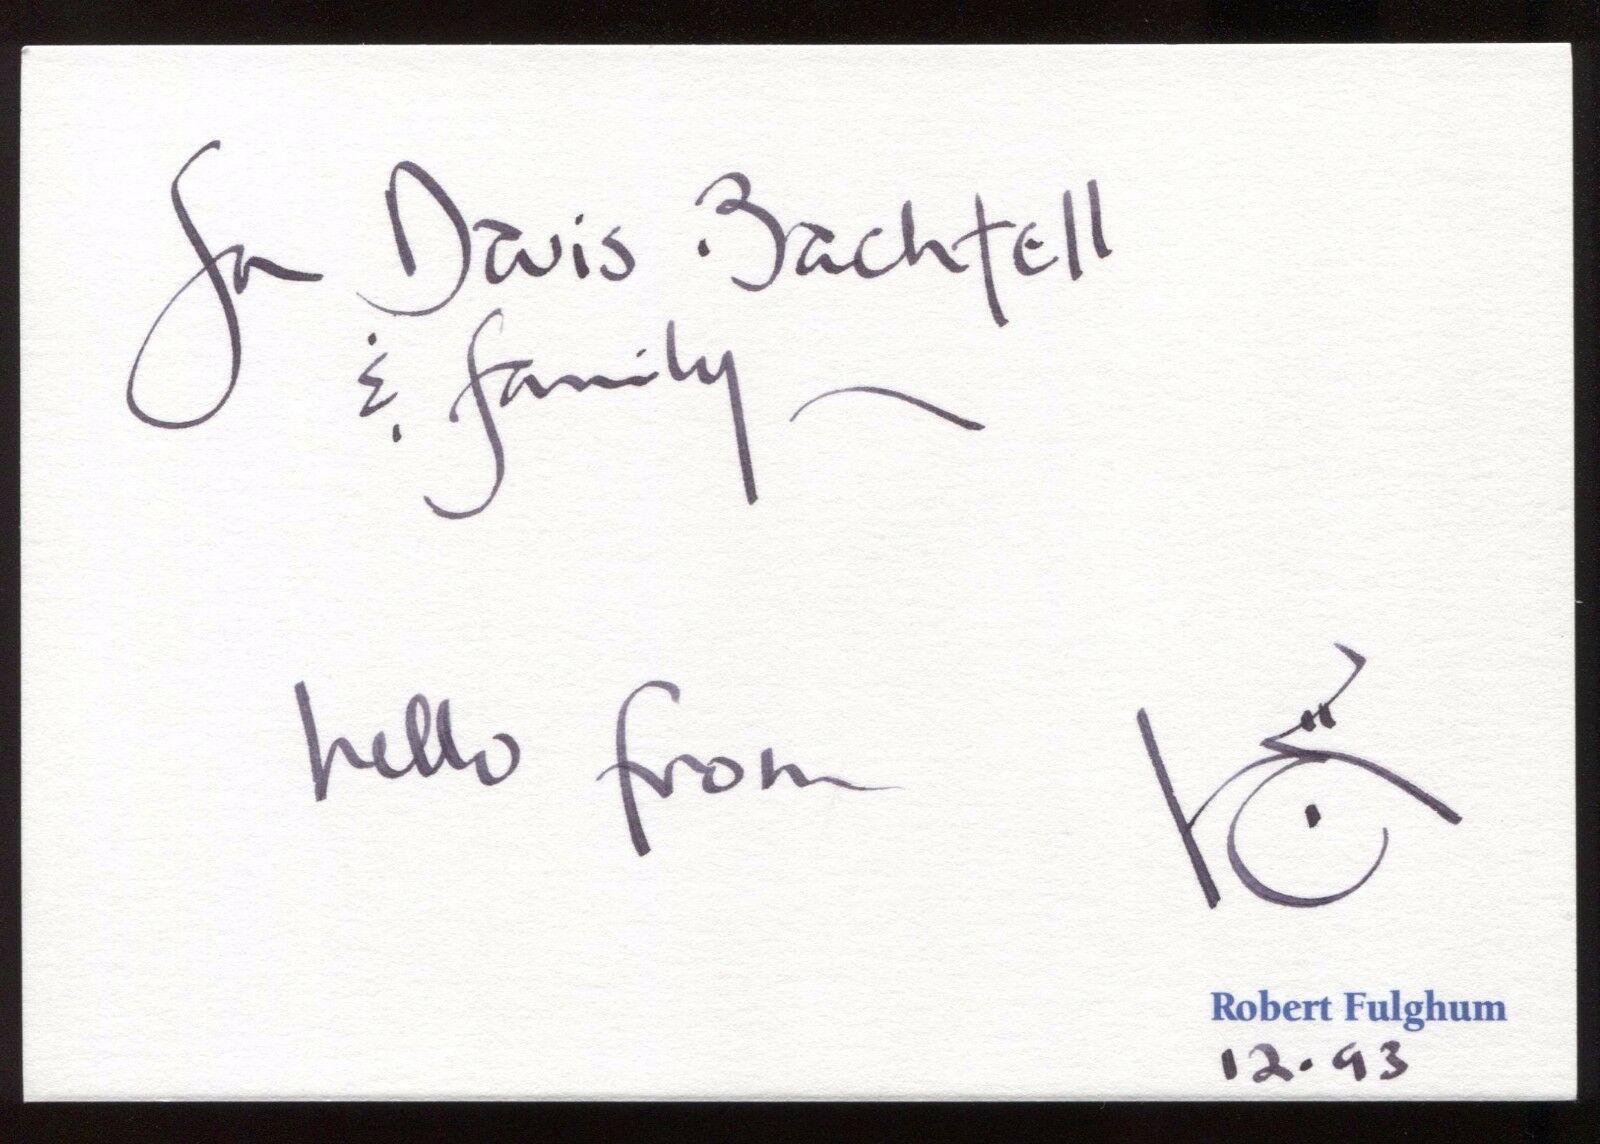 for Davis Bachtell
& family
hello from
Robert Fulghum
12.93